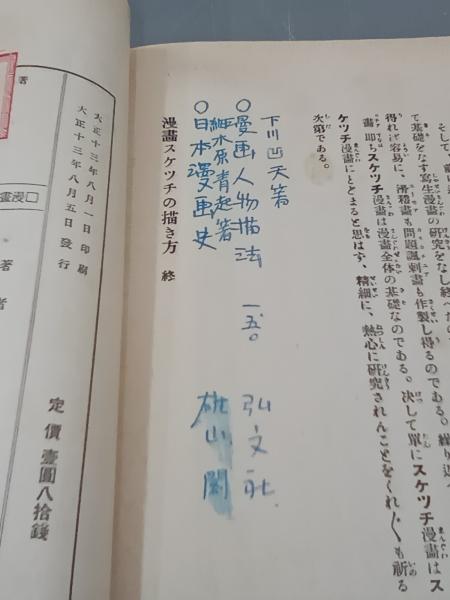 そして
て基礎をなす寫生漫畫の研究をなし終つたの
得れば容易に、滑稽畫も問題諷刺畫も作製し得るのである。繰り返
畫即ちスケツチ漫畫は漫畫全体の基礎なのである。決して單にスケツチ漫畫はス
ケツチ漫畫にとどまると思はず、精細に、熱心に研究されんことをくれ〴〵も祈る
次第である。
下川凹天著
○漫画人物描法 一、五〇 弘文社
細木原青起著
○日本漫画史 雄山閣
漫畫スケツチの描き方 終
大正十三年八月一日印刷
大正十三年八月五日發行
定價壹圓八拾錢
著
漫畫
著者